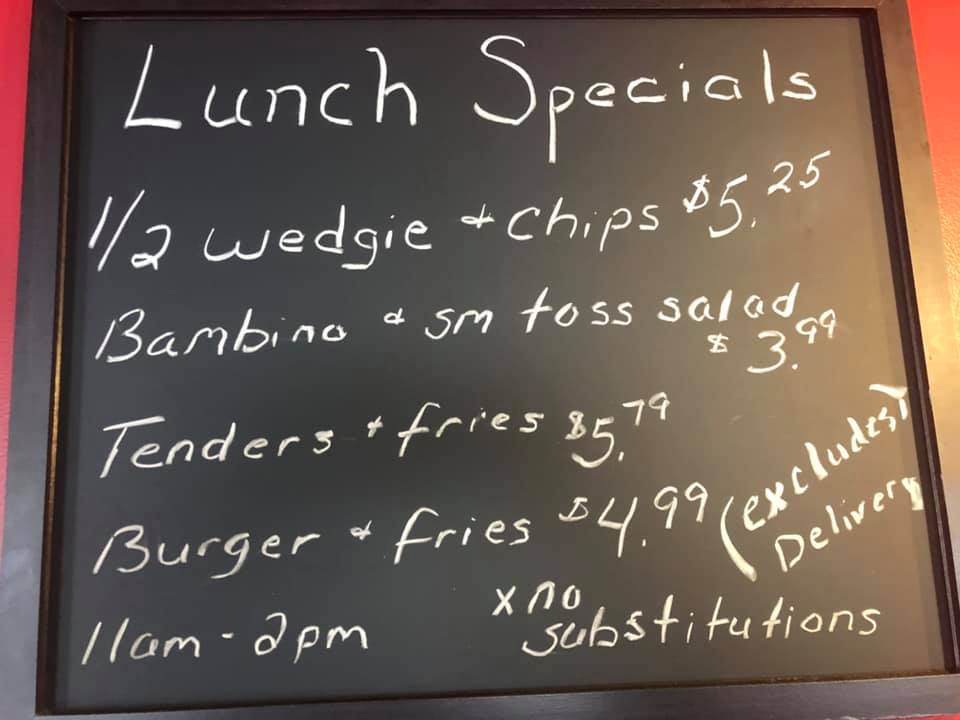 Lunch Specials
1/2 wedgie & chips $5.25
Bambino & sm toss salad
$3.99
Tenders & fries $5.79
Burger & fries $4.99 (excludes)
Delivery
11am - 2pm
x no
substitutions